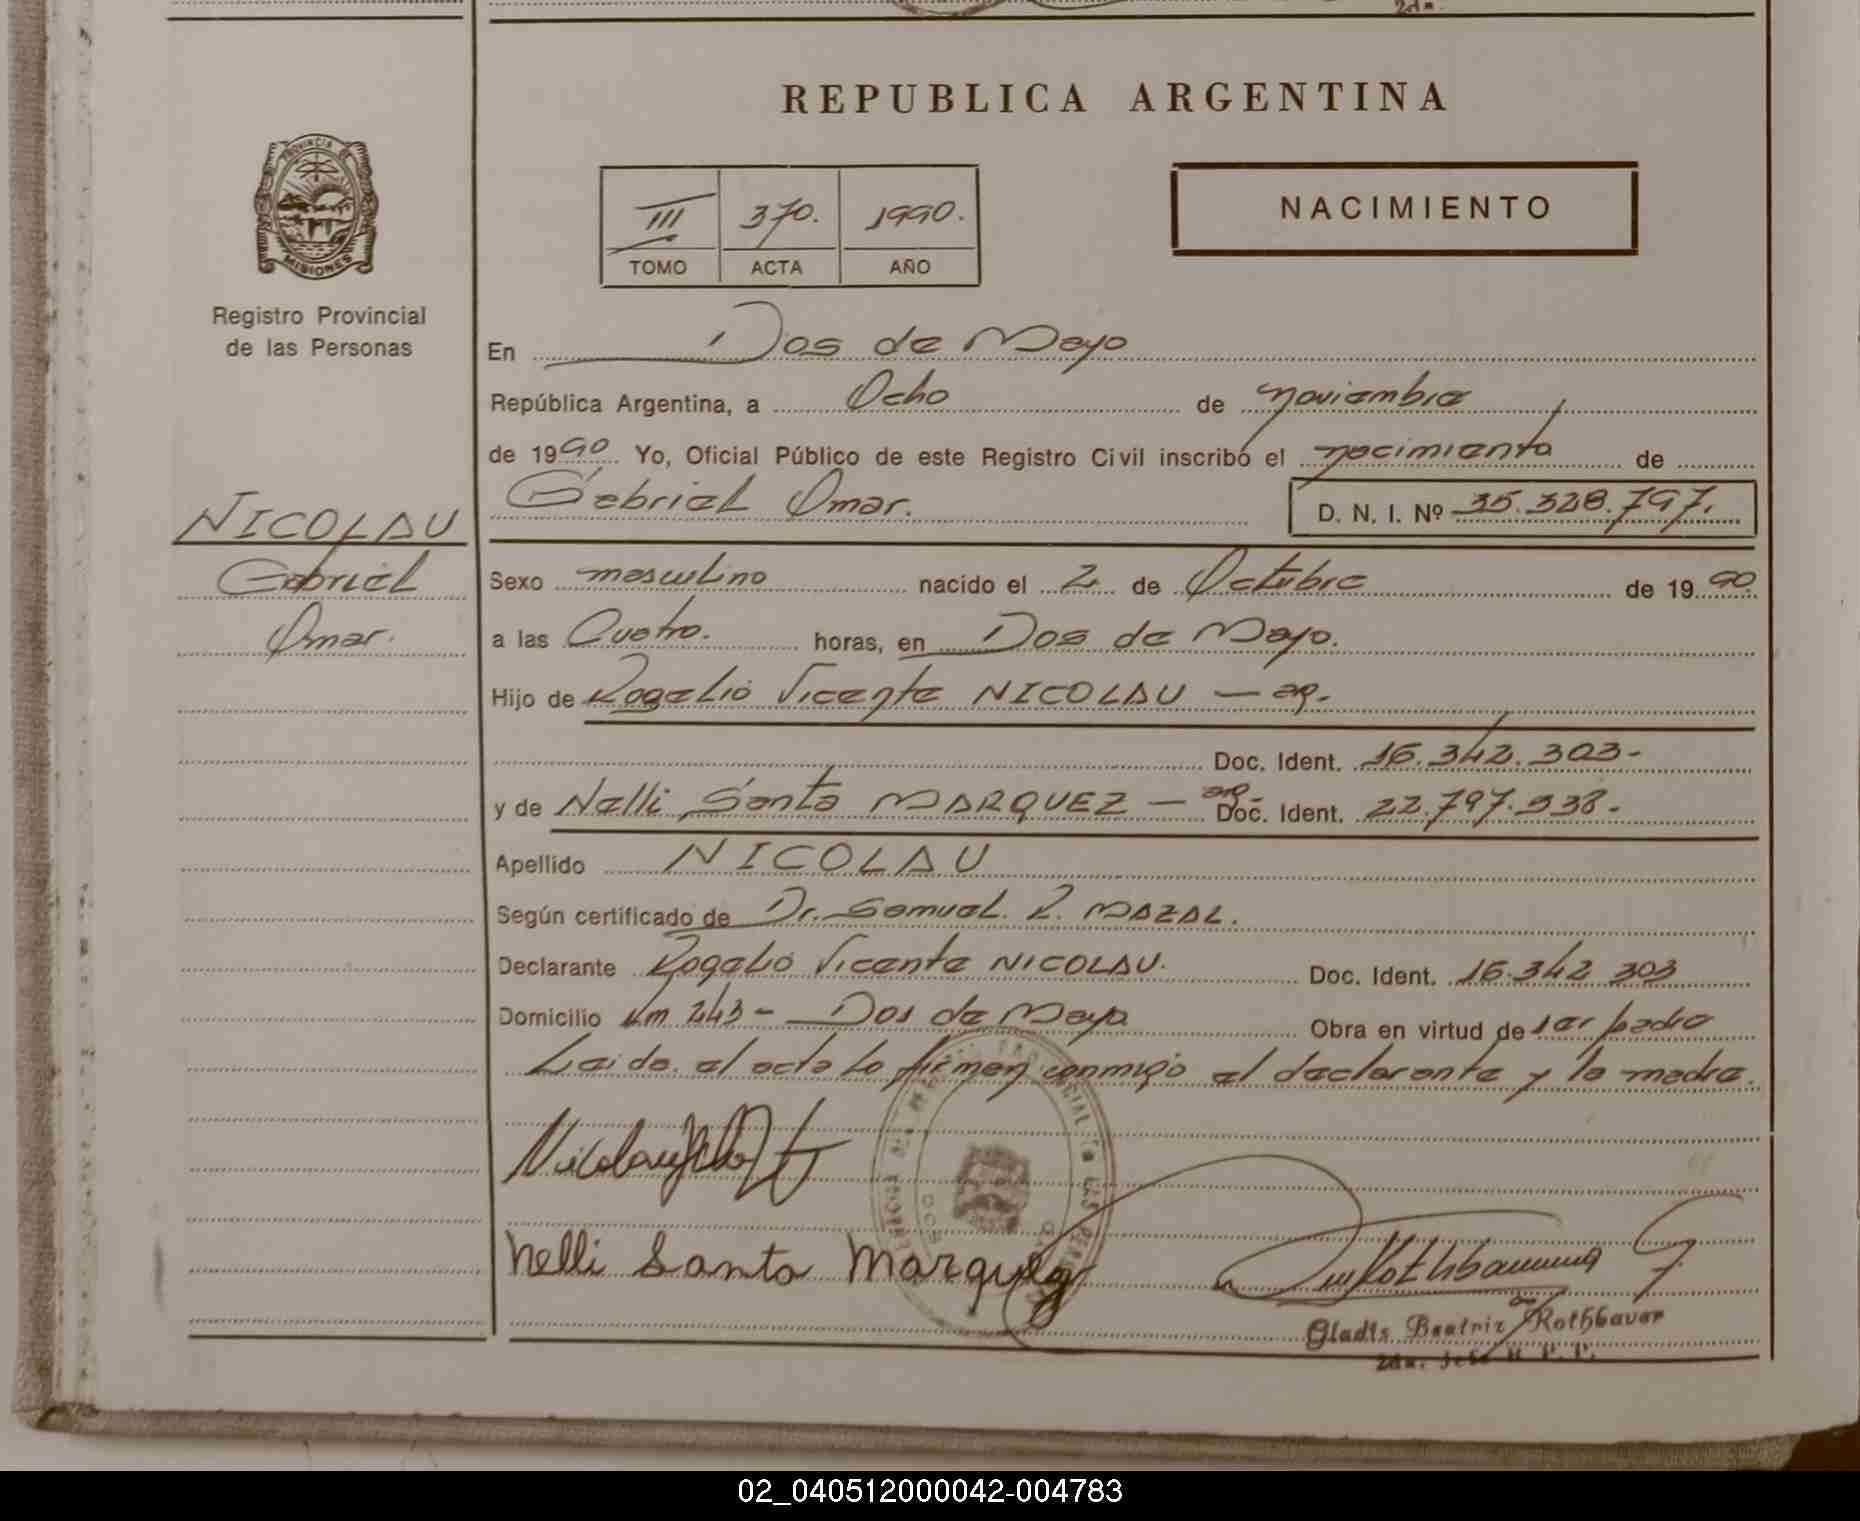 2da.
REPUBLICA ARGENTINA
PROVINCIA DE
MISIONES
Registro Provincial
de las Personas
III 370. 1990.
TOMO ACTA AÑO
NACIMIENTO
En Dos de Mayo
República Argentina, a Ocho de noviembre
de 1990 Yo, Oficial Público de este Registro Civil inscribó el nacimiento de
Gabriel Omar. D. N. I. Nº 35.328.797.
NICOLAU
Gabriel
Omar.
Sexo masculino nacido el 2 de Octubre de 1990.
a las Cuatro. horas, en Dos de Mayo.
Hijo de Rogelio Vicente NICOLAU — ar.
Doc. Ident. 16.342.303-
y de Nelli Santa MARQUEZ — arg- Doc. Ident. 22.797.938-
Apellido NICOLAU
Según certificado de Dr. Samuel. R. MAZAL.
Declarante Rogelio Vicente NICOLAU. Doc. Ident. 16.342 303
Domicilio Km 243 - Dos de Mayo Obra en virtud de ser padre
Leida el acta la firman conmigo el declarante y la madre.
Nelli Santa Marquez
Gladis Beatriz Rothbauer
2da. Jefe R. P. P.
02_040512000042-004783